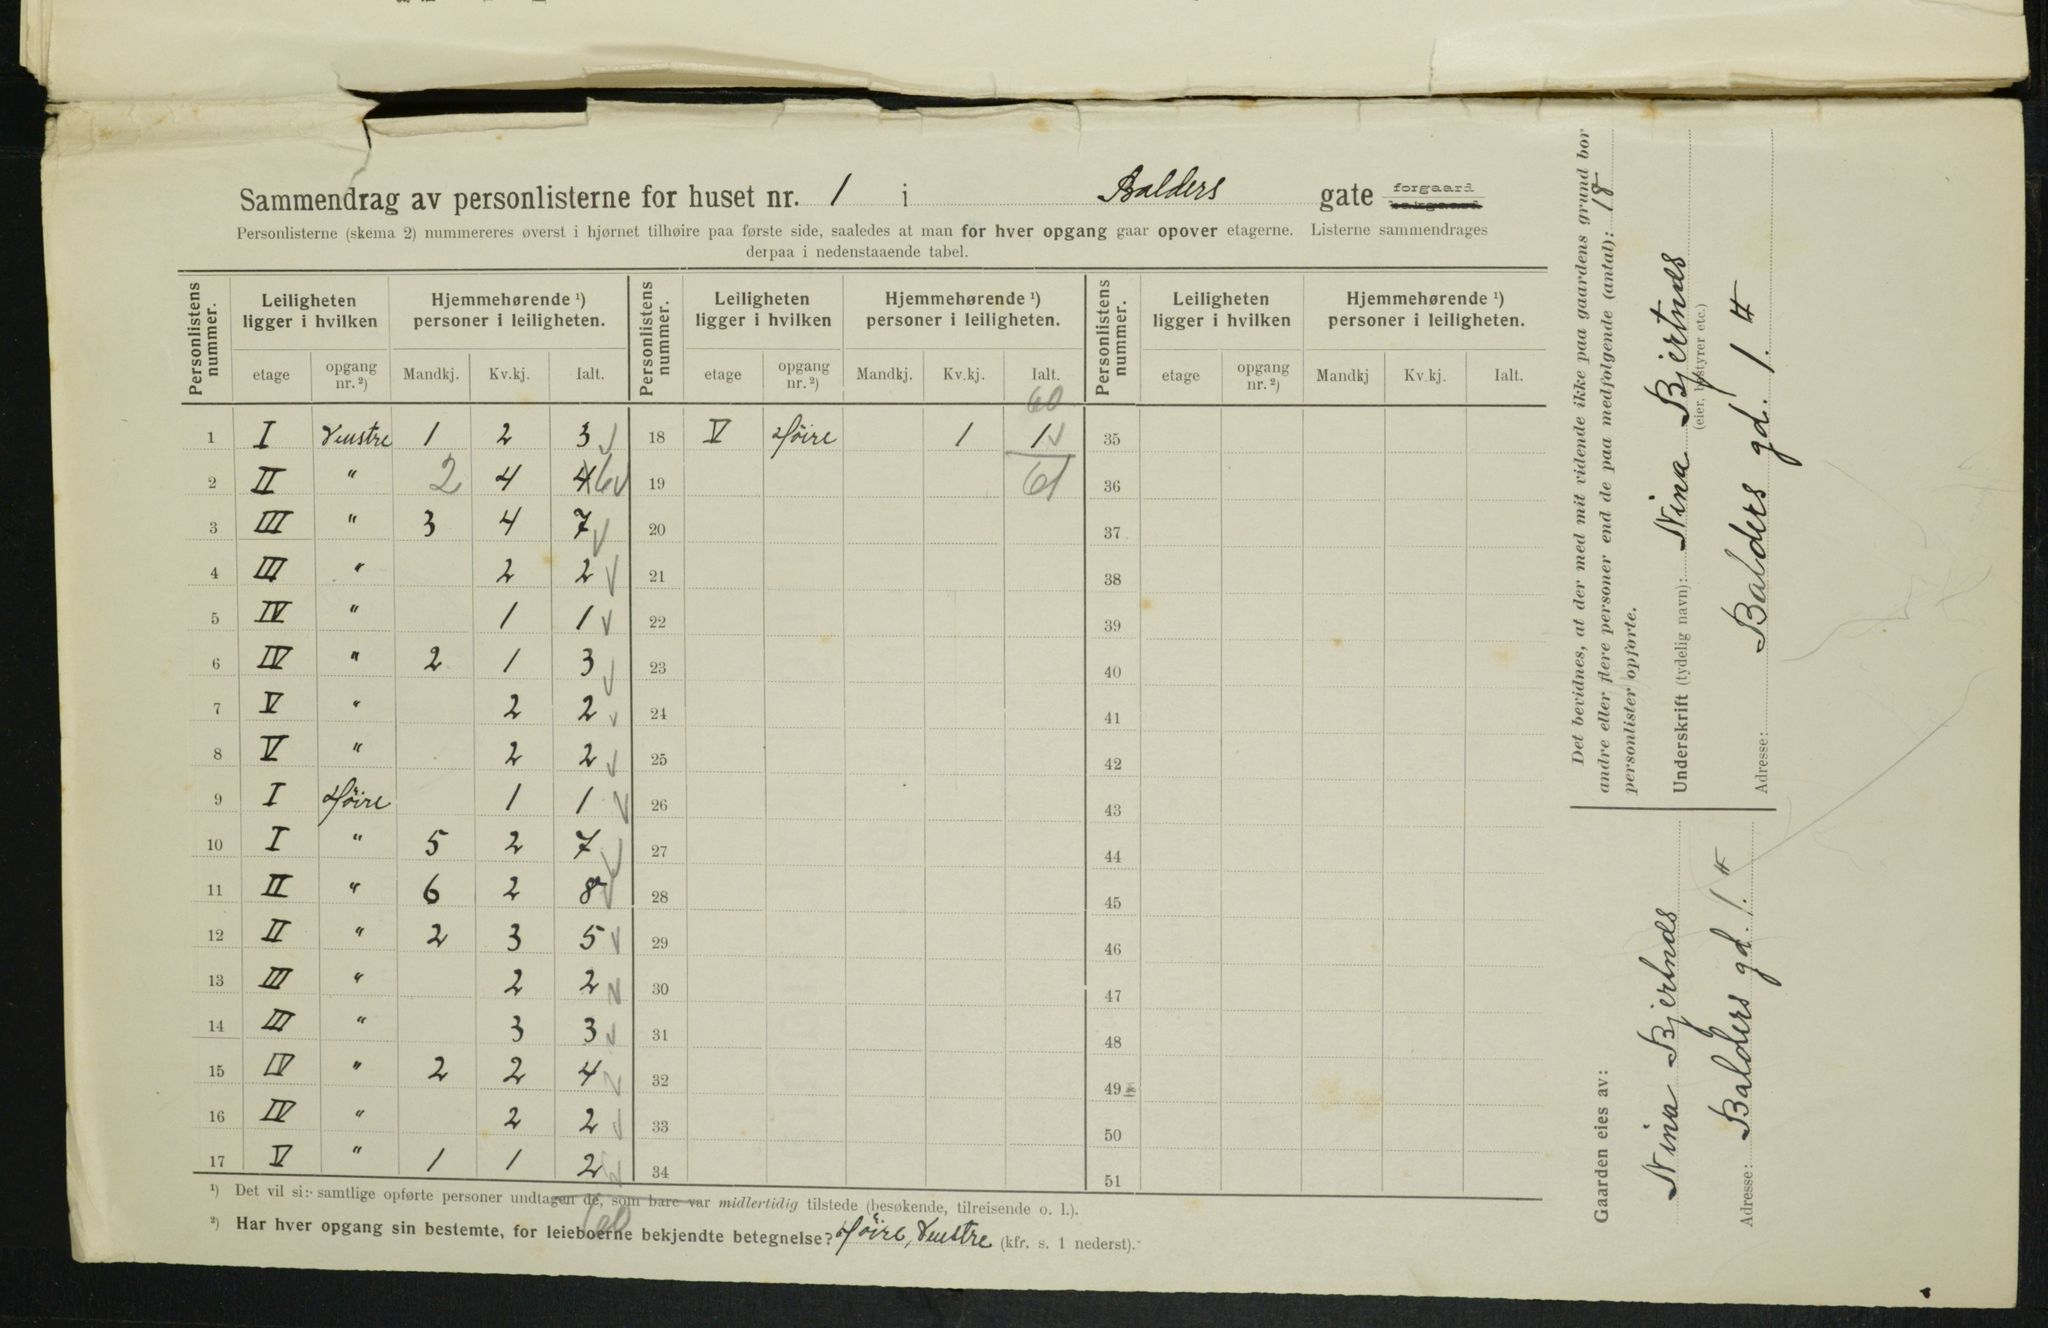 Sammendrag av personlisterne for huset nr. 1 i Balders gate forgaard
Personlisterne (skema 2) nummereres øverst i hjørnet tilhøire paa første side, saaledes at man for hver opgang gaar opover etagerne. Listerne sammendrages
derpaa i nedenstaaende tabel.
Personlistens nummer. Leiligheten ligger i hvilken Hjemmehørende ¹) personer i leiligheten. Personlistens nummer. Leiligheten ligger i hvilken Hjemmehørende ¹) personer i leiligheten. Personlistens nummer. Leiligheten ligger i hvilken Hjemmehørende ¹) personer i leiligheten.
etage opgang nr. ²) Mandkj. Kv.kj. Ialt. etage opgang nr. ²) Mandkj. Kv.kj. Ialt. etage opgang nr. ²) Mandkj Kv.kj. Ialt.
60
1 I Venstre 1 2 3 18 V Høire 1 1 35
2 II " 2 4 4 6 19 61 36
3 III " 3 4 7 20 37
4 III " 2 2 21 38
5 IV " 1 1 22 39
6 IV " 2 1 3 23 40
7 V " 2 2 24 41
8 V " 2 2 25 42
9 I Høire 1 1 26 43
10 I " 5 2 7 27 44
11 II " 6 2 8 28 45
12 II " 2 3 5 29 46
13 III " 2 2 30 47
14 III " 3 3 31 48
15 IV " 2 2 4 32 49
16 IV " 2 2 33 50
17 V " 1 1 2 34 51
¹) Det vil si: samtlige opførte personer undtagen de, som bare var midlertidig tilstede (besøkende, tilreisende o. l.).
60
²) Har hver opgang sin bestemte, for leieboerne bekjendte betegnelse? Høire, Venstre (kfr. s. 1 nederst).
Det bevidnes, at der med mit vidende ikke paa gaardens grund bor
andre eller flere personer end de paa medfølgende (antal): 18
personlister opførte.
Underskrift (tydelig navn): Nina Bjertnds
(eier, bestyrer etc.)
Adresse: Balders gd. 1. #
Gaarden eies av:
Nina Bjertnds
Adresse: Balders gd. 1. #